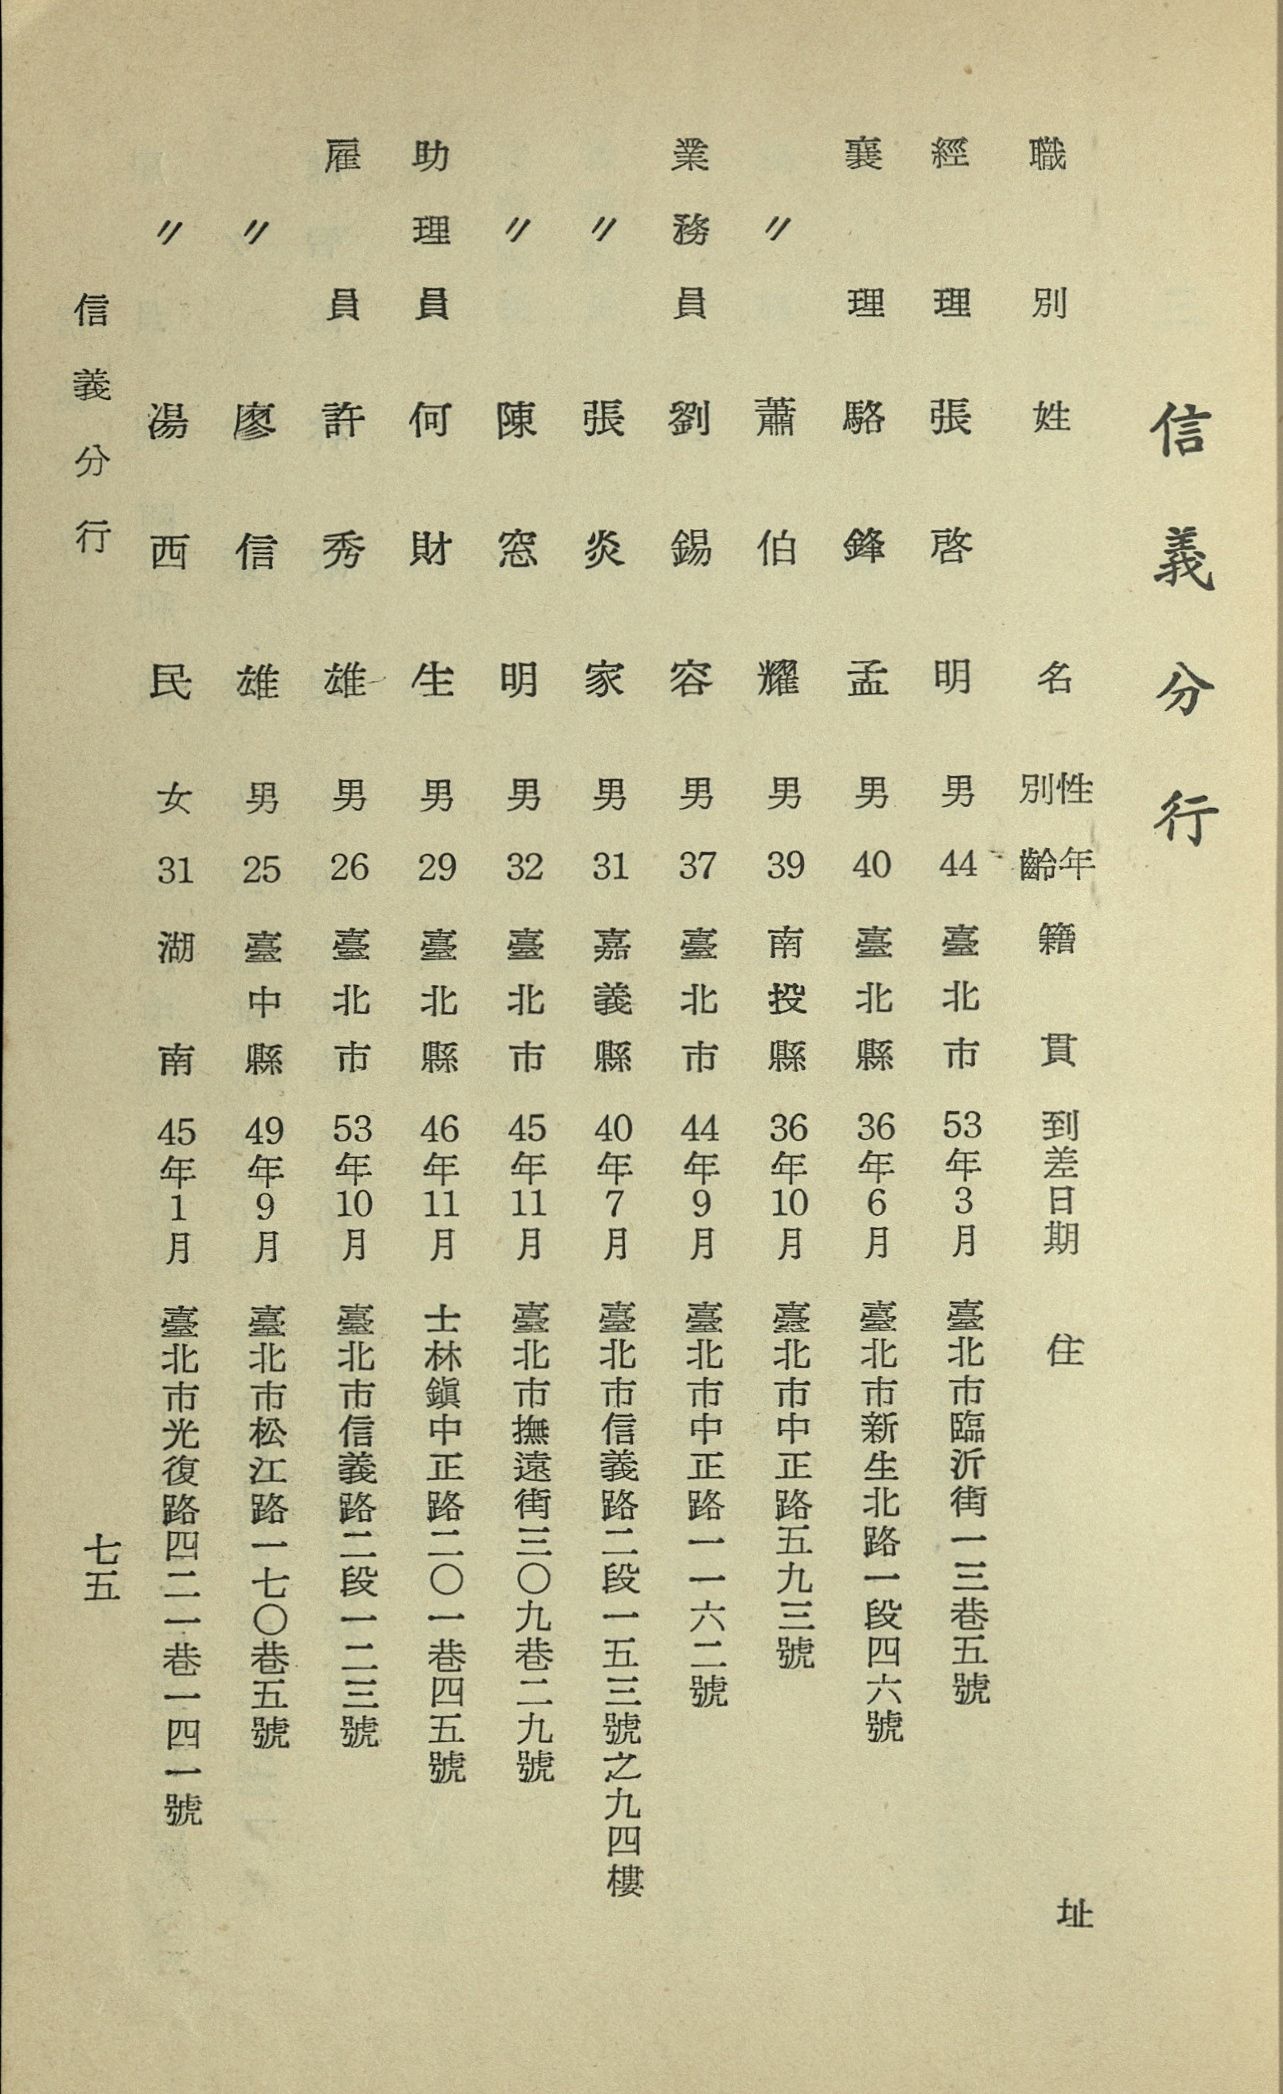 信義分行
職別 姓名 性別 年齡 籍貫 到差日期 住址
經理 張啓明 男 44 臺北市 53年3月 臺北市臨沂街一三巷五號
襄理 駱鋒孟 男 40 臺北縣 36年6月 臺北市新生北路一段四六號
〃 蕭伯耀 男 39 南投縣 36年10月 臺北市中正路五九三號
業務員 劉錫容 男 37 臺北市 44年9月 臺北市中正路一一六二號
〃 張炎家 男 31 嘉義縣 40年7月 臺北市信義路二段一五三號之九四樓
〃 陳窓明 男 32 臺北市 45年11月 臺北市撫遠街三〇九巷二九號
助理員 何財生 男 29 臺北縣 46年11月 士林鎭中正路二〇一巷四五號
雇員 許秀雄 男 26 臺北市 53年10月 臺北市信義路二段一二三號
〃 廖信雄 男 25 臺中縣 49年9月 臺北市松江路一七〇巷五號
〃 湯西民 女 31 湖南 45年1月 臺北市光復路四二一巷一四一號
信義分行
七五